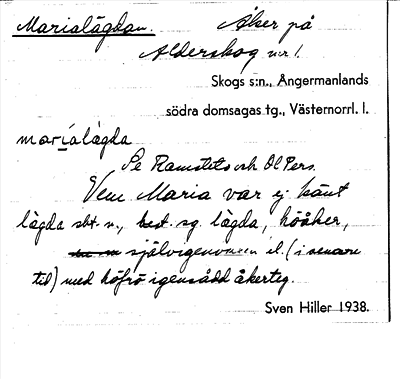 Marialägdan. Åker på
Alderskog nr 1.
Skogs s:n., Ångermanlands
södra domsagas tg., Västernorrl. l.
maríalàgda
Se Ramstets och Ol Pers.
Vem Maria var ej känt
lägda sbt. n., best. sg. lägda, höåker,
självigenvuxen el. (i senare
tid) med höfrö igensådd åkerteg.
Sven Hiller 1938.